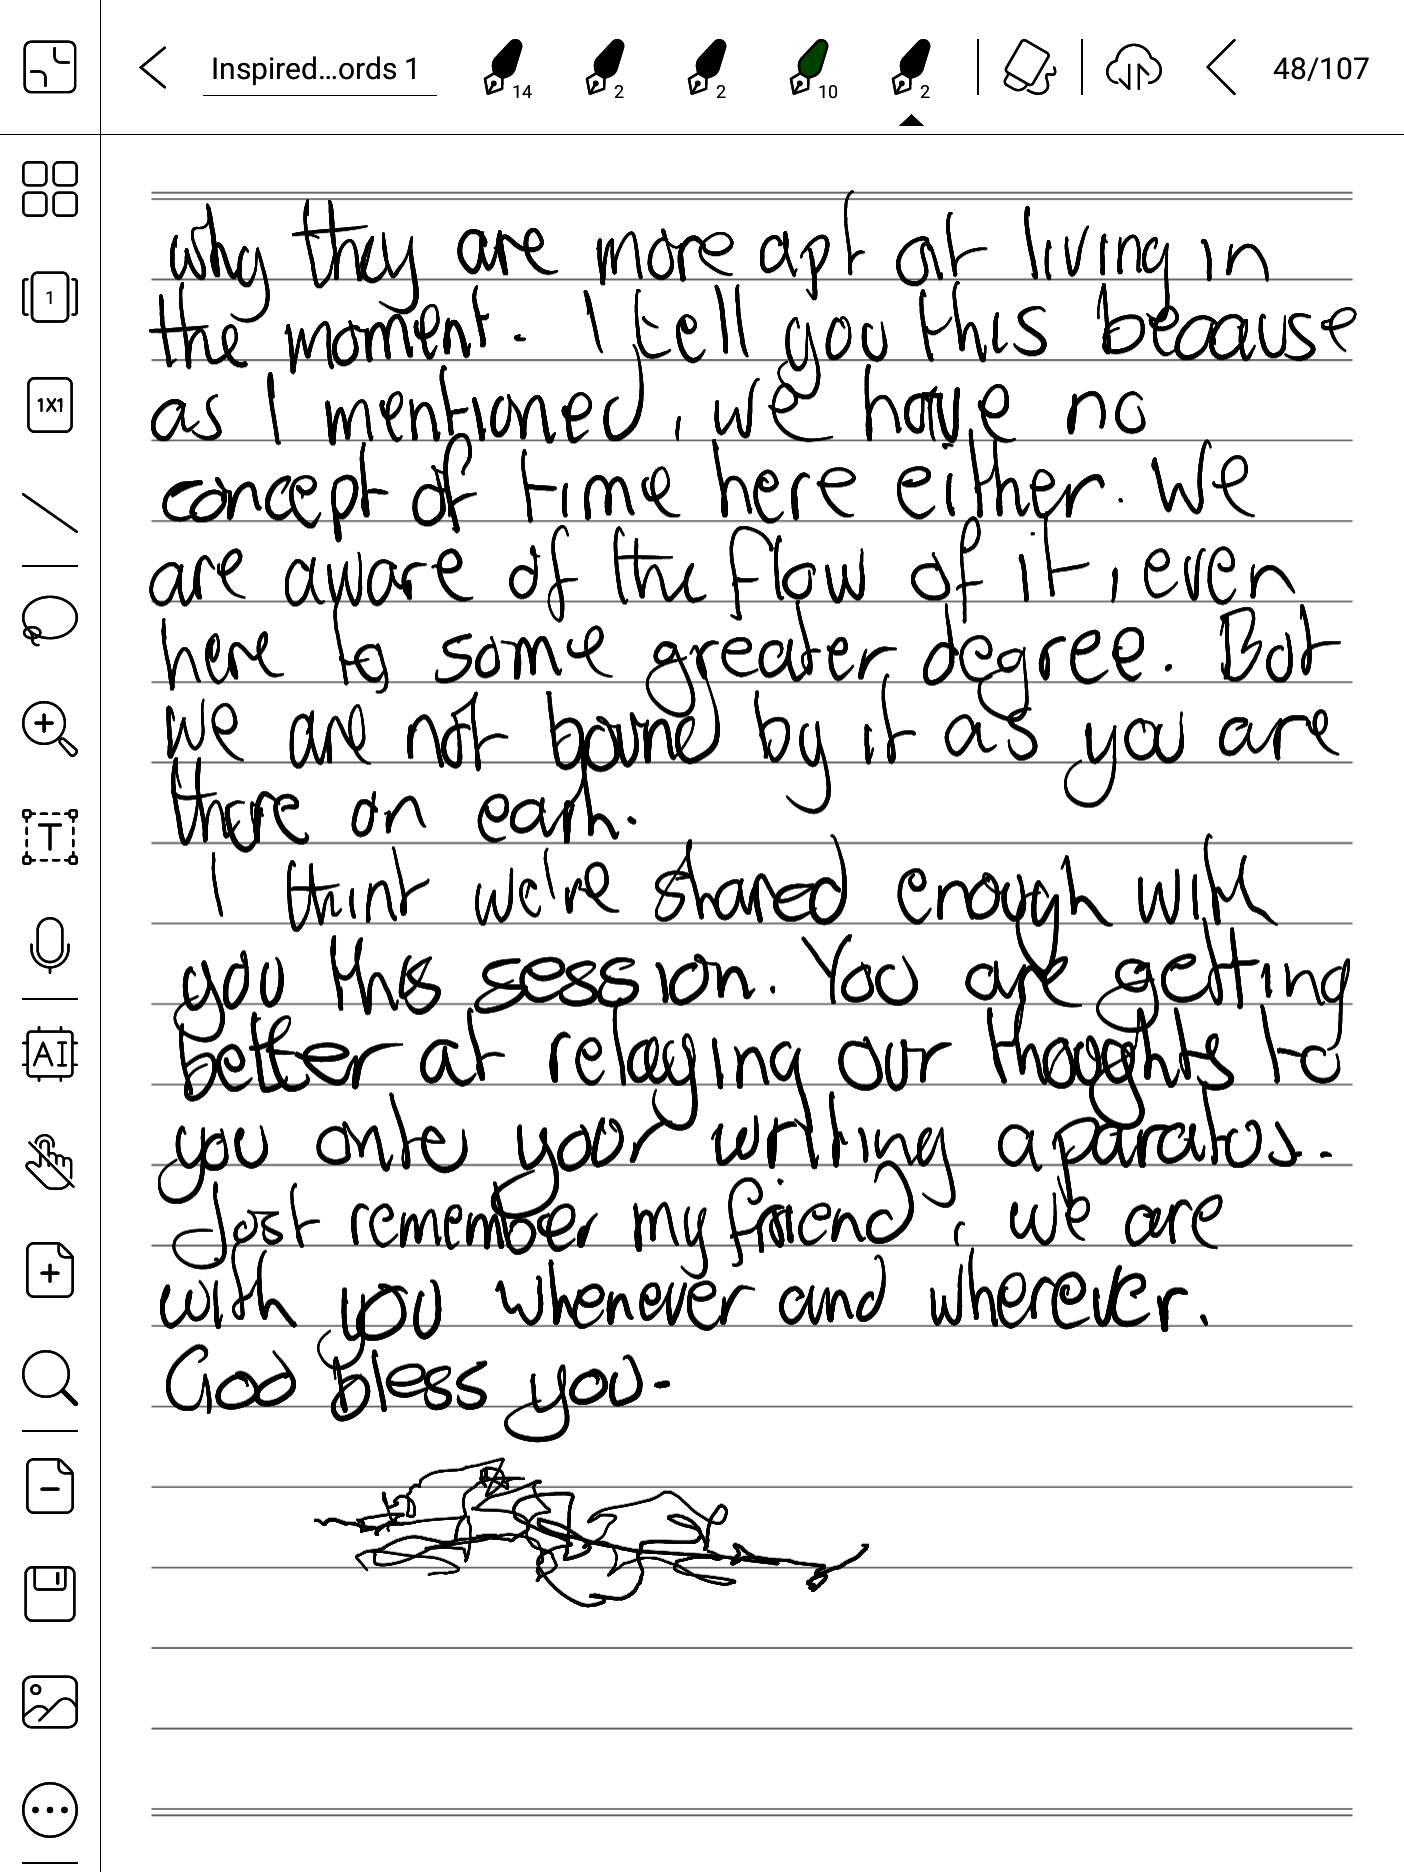 Inspired...ords 1
14
2
2
10
2
48/107
1
1X1
T
AI
why they are more apt at living in
the moment. I tell you this because
as I mentioned, we have no
concept of time here either. We
are aware of the flow of it, even
here to some greater degree. But
we are not bound by it as you are
there on earh.
I think we're shared enough with
you this session. You are getting
better at relaying our thoughts to
you onto your writing aparatus.
Just remember my friend, we are
with you whenever and wherever.
God bless you.